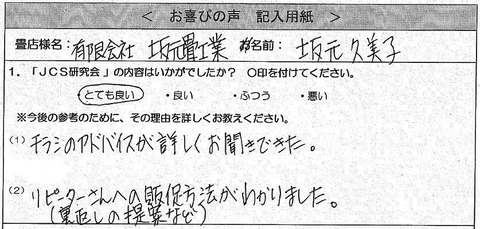 ＜ お喜びの声 記入用紙 ＞
畳店様名：有限会社 坂元畳工業 お名前：坂元 久美子
1．「ＪＣＳ研究会」の内容はいかがでしたか？ 〇印を付けてください。
とても良い ・良い ・ふつう ・悪い
※今後の参考のために、その理由を詳しくお教えください。
(1) チラシのアドバイスが詳しくお聞きできた。
(2) リピーターさんへの販促方法がわかりました。
(裏返しの提案など)